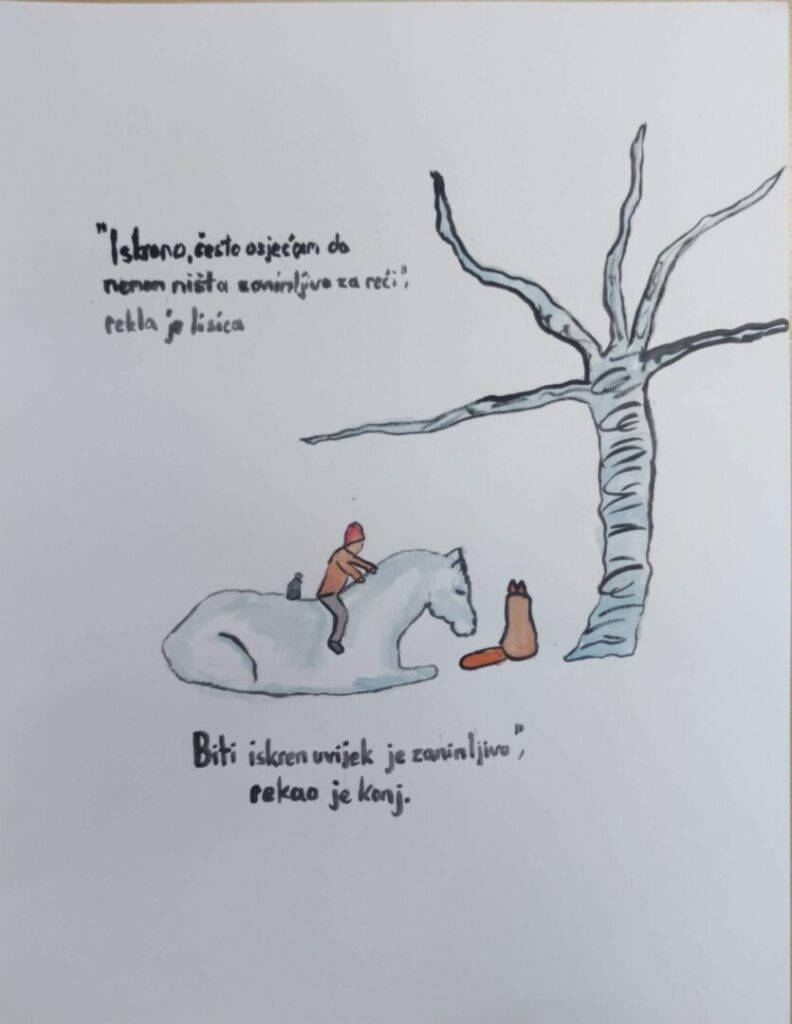 "Iskreno, često osjećam da
nemam ništa zanimljivo za reći",
rekla je lisica
Biti iskren uvijek je zanimljivo",
rekao je konj.